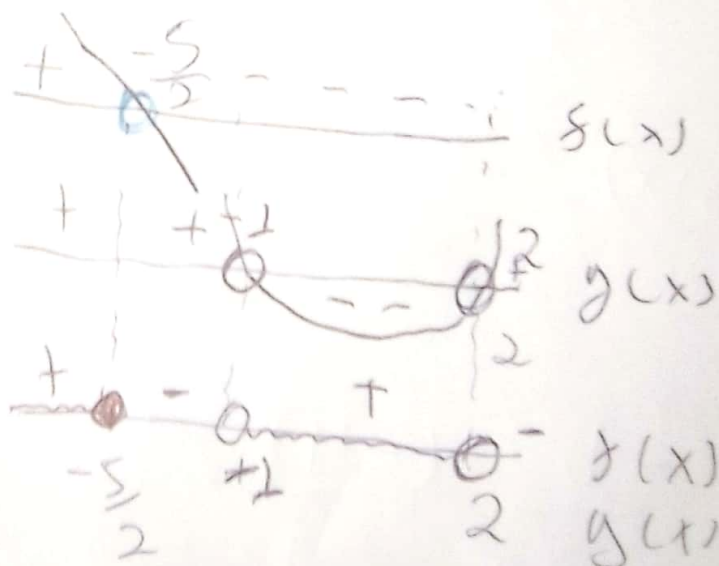 + -5/2 - - - - f(x)
+ + +1 - - + 2 g(x)
2
+ - + - f(x)
-5/2 +1 2 g(x)